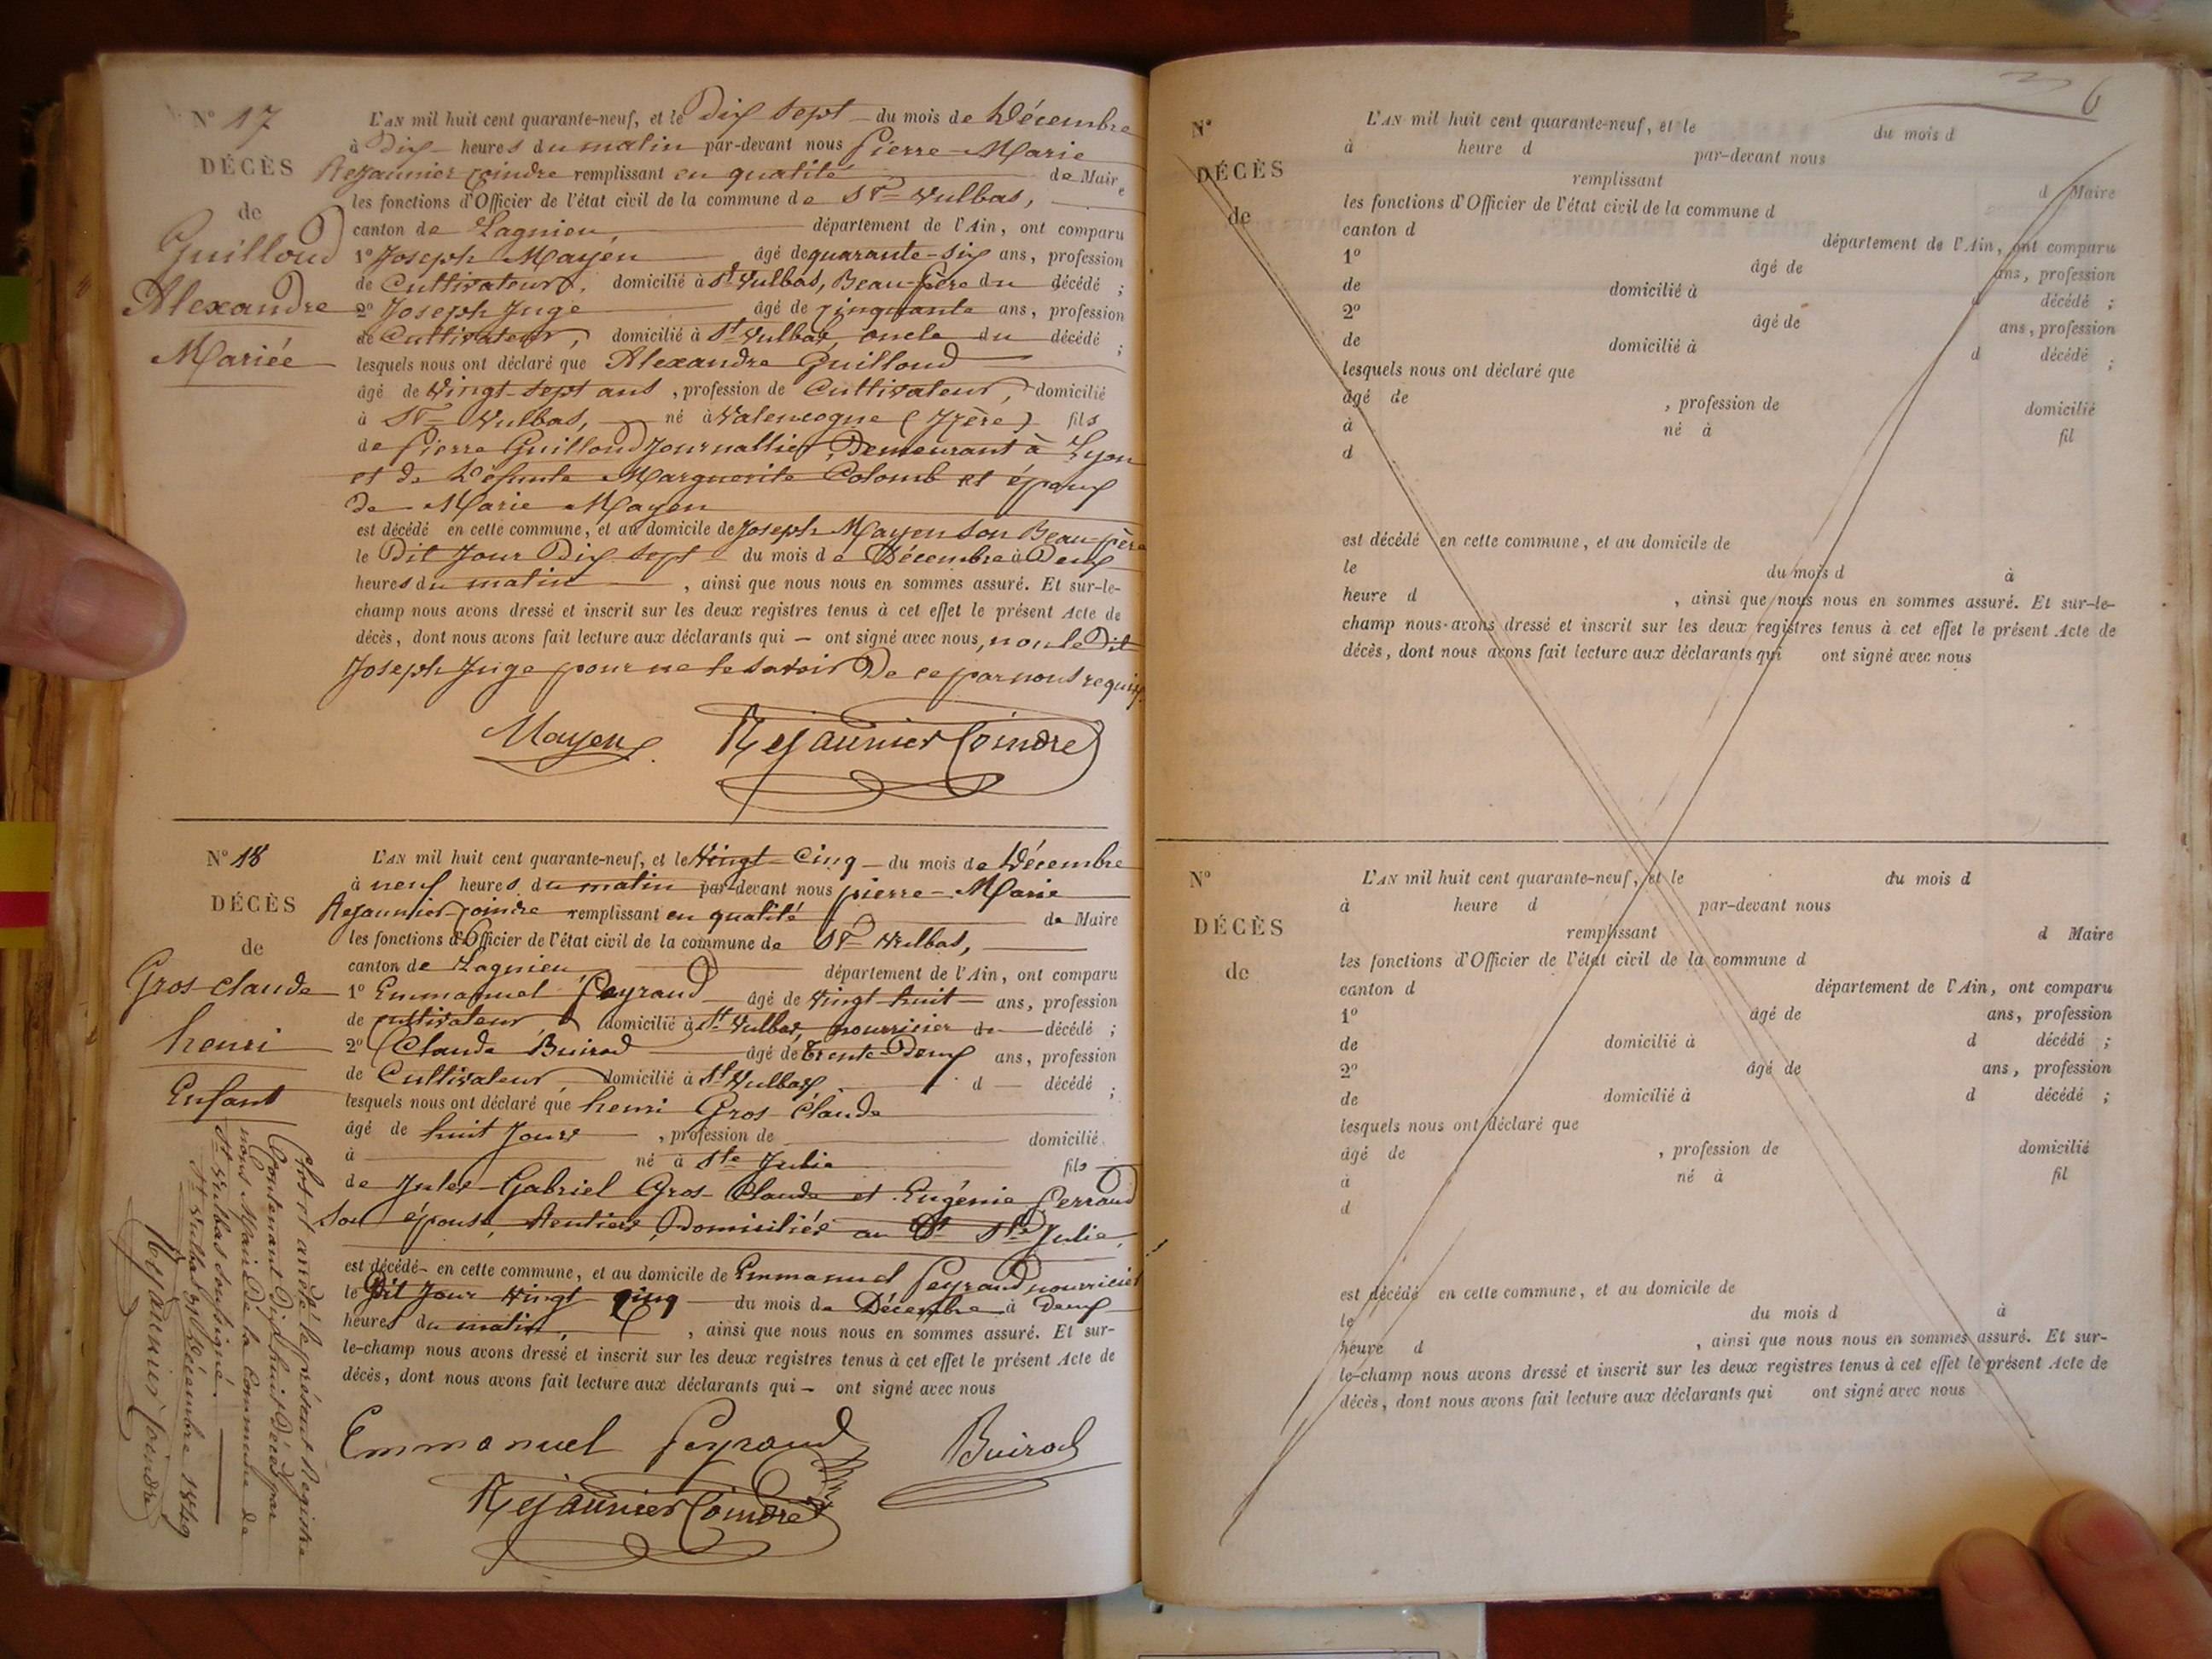 N° 17
DÉCÈS
de
Guilloud
Alexandre
Mariée
L'AN mil huit cent quarante-neuf, et le Dix sept du mois de Décembre
à Dix heures du matin par-devant nous Pierre-Marie
Rejaunier Coindre remplissant en qualité de Maire
les fonctions d'Officier de l'état civil de la commune de St Vulbas,
canton de Lagnieu, département de l'Ain, ont comparu
1° Joseph Mayen âgé de quarante-six ans, profession
de Cultivateur, domicilié à St Vulbas, Beau-père du décédé ;
2° Joseph Juge âgé de cinquante ans, profession
de Cultivateur, domicilié à St Vulbas, oncle du décédé ;
lesquels nous ont déclaré que Alexandre Guilloud
âgé de Vingt-sept ans, profession de Cultivateur, domicilié
à St Vulbas, né à Valencogne (Isère) fils
de Pierre Guilloud Journallier, Demeurant à Lyon
et de Défunte Marguerite Colomb et époux
de Marie Mayen
est décédé en cette commune, et au domicile de Joseph Mayen son Beau-père
le Dit Jour Dix sept du mois de Décembre à Deux
heures du matin, ainsi que nous nous en sommes assuré. Et sur-le-
champ nous avons dressé et inscrit sur les deux registres tenus à cet effet le présent Acte de
décès, dont nous avons fait lecture aux déclarants qui — ont signé avec nous, non le Dit
Joseph Juge pour ne le savoir De ce par nous requis.
Mayen Rejaunier Coindre
N° 18
DÉCÈS
de
Gros-claude
henri
Enfant
L'AN mil huit cent quarante-neuf, et le Vingt-Cinq du mois de Décembre
à neuf heures du matin par-devant nous pierre-Marie
Rejaunier-Coindre remplissant en qualité de Maire
les fonctions d'Officier de l'état civil de la commune de St Vulbas,
canton de Lagnieu, département de l'Ain, ont comparu
1° Emmanuel Peyraud âgé de Vingt-huit ans, profession
de cultivateur, domicilié à St Vulbas, nourricier du décédé ;
2° Claude Buirod âgé de Trente-Deux ans, profession
de Cultivateur, domicilié à St Vulbas, d décédé ;
lesquels nous ont déclaré que henri Gros Claude
âgé de huit Jours, profession de domicilié
à né à Ste Julie fils
de Jules-Gabriel Gros-Claude et Eugénie Perraud
son épouse, Rentiers, Domiciliés au Dt Ste Julie,
est décédé en cette commune, et au domicile de Emmanuel Peyraud nourricier
le Dit Jour Vingt cinq du mois de Décembre à Deux
heures du matin, ainsi que nous nous en sommes assuré. Et sur-
le-champ nous avons dressé et inscrit sur les deux registres tenus à cet effet le présent Acte de
décès, dont nous avons fait lecture aux déclarants qui — ont signé avec nous
Emmanuel Peyraud Buirod
Rejaunier Coindre
Clos et arrêté le présent Registre
Contenant Dix huit Décès par
nous Maire de la Commune de
St Vulbas soussigné.
St Vulbas 31 Décembre 1849
Rejaunier Coindre
6
N°
DÉCÈS
de
L'AN mil huit cent quarante-neuf, et le du mois d
à heure d par-devant nous
remplissant d Maire
les fonctions d'Officier de l'état civil de la commune d
canton d département de l'Ain, ont comparu
1° âgé de ans, profession
de domicilié à d décédé ;
2° âgé de ans, profession
de domicilié à d décédé ;
lesquels nous ont déclaré que
âgé de , profession de domicilié
à né à fil
d
est décédé en cette commune, et au domicile de
le du mois d à
heure d , ainsi que nous nous en sommes assuré. Et sur-le-
champ nous avons dressé et inscrit sur les deux registres tenus à cet effet le présent Acte de
décès, dont nous avons fait lecture aux déclarants qui ont signé avec nous
N°
DÉCÈS
de
L'AN mil huit cent quarante-neuf, et le du mois d
à heure d par-devant nous
remplissant d Maire
les fonctions d'Officier de l'état civil de la commune d
canton d département de l'Ain, ont comparu
1° âgé de ans, profession
de domicilié à d décédé ;
2° âgé de ans, profession
de domicilié à d décédé ;
lesquels nous ont déclaré que
âgé de , profession de domicilié
à né à fil
d
est décédé en cette commune, et au domicile de
le du mois d à
heure d , ainsi que nous nous en sommes assuré. Et sur-
le-champ nous avons dressé et inscrit sur les deux registres tenus à cet effet le présent Acte de
décès, dont nous avons fait lecture aux déclarants qui ont signé avec nous